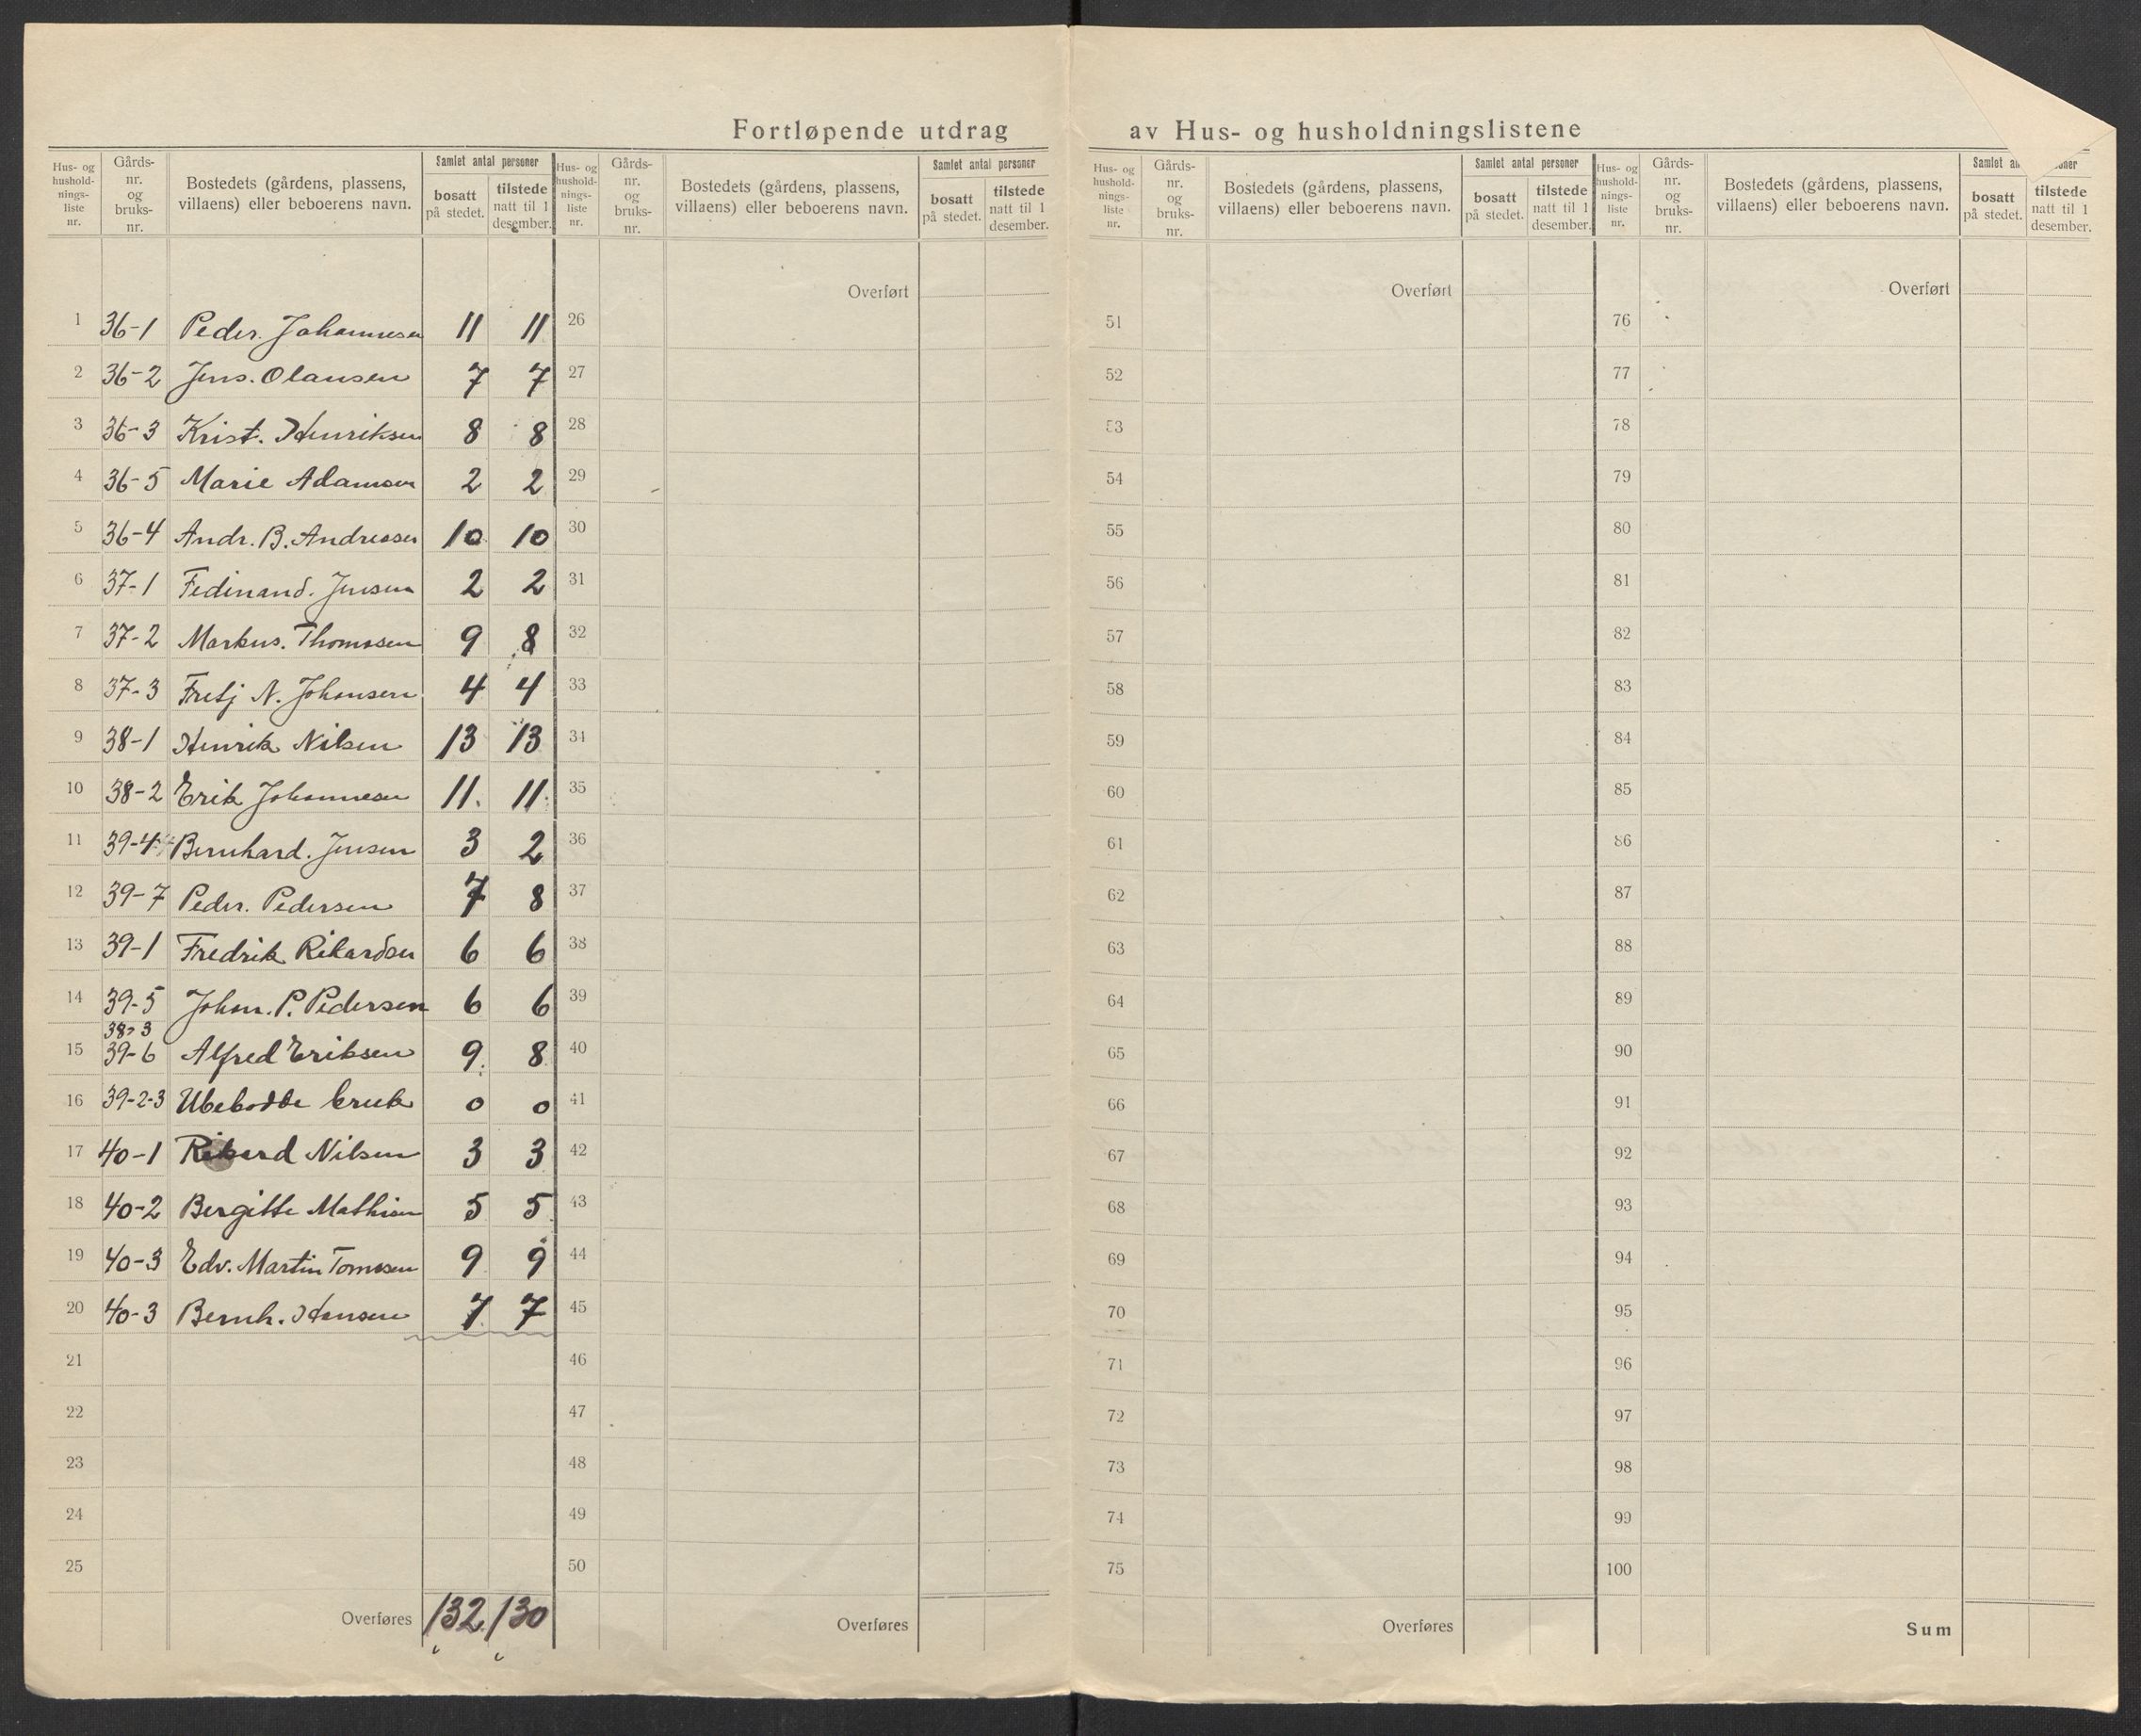 Fortløpende utdrag av Hus- og husholdningslistene
Hus- og husholdnings-liste nr. Gårds-nr. og bruks-nr. Bostedets (gårdens, plassens, villaens) eller beboerens navn. Samlet antal personer bosatt på stedet. tilstede natt til 1 desember.
1 36-1 Peder. Johannesen 11 11
2 36-2 Jens. Olausen 7 7
3 36-3 Krist. Henriksen 8 8
4 36-5 Marie Adamsen 2 2
5 36-4 Andr. B. Andreasen 10 10
6 37-1 Fedinand. Jensen 2 2
7 37-2 Markus. Thomasen 9 8
8 37-3 Fretj N. Johansen 4 4
9 38-1 Henrik Nilsen 13 13
10 38-2 Erik Johannesen 11. 11.
11 39-4 Bernhard. Jensen 3 2
12 39-7 Peder. Pedersen 7 8
13 39-1 Fredrik Rikardsen 6 6
14 39-5 Johan. P. Pedersen 6 6
38-3
15 39-6 Alfred Eriksen 9. 8
16 39-2-3 Ubebodde bruk 0 0
17 40-1 Rikard Nilsen 3 3
18 40-2 Bergitte Mathisen 5 5
19 40-3 Edv. Martin Tomasen 9 9
20 40-3 Bernh. Hansen 7 7
21
22
23
24
25
Overføres 132 130
Hus- og husholdnings-liste nr. Gårds-nr. og bruks-nr. Bostedets (gårdens, plassens, villaens) eller beboerens navn. Samlet antal personer bosatt på stedet. tilstede natt til 1 desember.
Overført
26
27
28
29
30
31
32
33
34
35
36
37
38
39
40
41
42
43
44
45
46
47
48
49
50
Overføres
Hus- og husholdnings-liste nr. Gårds-nr. og bruks-nr. Bostedets (gårdens, plassens, villaens) eller beboerens navn. Samlet antal personer bosatt på stedet. tilstede natt til 1 desember.
Overført
51
52
53
54
55
56
57
58
59
60
61
62
63
64
65
66
67
68
69
70
71
72
73
74
75
Overføres
Hus- og husholdnings-liste nr. Gårds-nr. og bruks-nr. Bostedets (gårdens, plassens, villaens) eller beboerens navn. Samlet bosatt på stedet. tilstede natt til 1 desember.
Overført
76
77
78
79
80
81
82
83
84
85
86
87
88
89
90
91
92
93
94
95
96
97
98
99
100
Sum